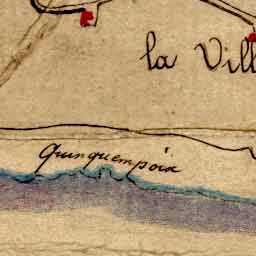 la Vill
Quinquempoix